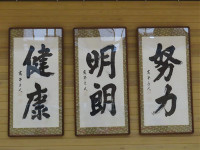 健康
明朗
努力